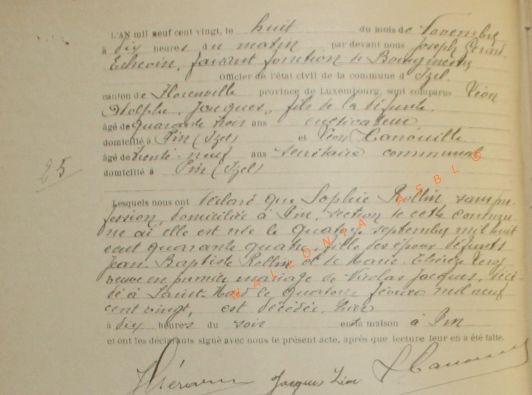 L'AN mil neuf cent vingt, le huit du mois de Novembre
à dix heures du matin par devant nous Joseph Gérard
Echevin, faisant fonction de Bourgmestre
Officier de l'état civil de la commune d'Izel
canton de Florenville province de Luxembourg, sont comparus Léon
Adolphe Jacques, fils de la défunte
âgé de quarante trois ans cultivateur
domicilié à Pin (Izel) et Léon Canouille
âgé de trente-neuf ans secrétaire communal
domicilié à Pin (Izel)
25
Lesquels nous ont déclaré que Sophie Rollin, sans pro-
fession, domiciliée à Pin, section de cette commu-
ne où elle est née le quatorze septembre mil huit
cent quarante quatre, fille des époux défunts
Jean Baptiste Rollin et de Marie Thérèse
veuve en première mariage de Nicolas Jacques, décé-
dé à Saint-Mard le quatorze février mil neuf
cent vingt, est décédée hier
à dix heures du soir en sa maison à Pin
et ont les déclarants signé avec nous le présent acte, après que lecture leur en a été faite.
JGérard Jacques Léon L Canouille
WALLONIA ASBL ©